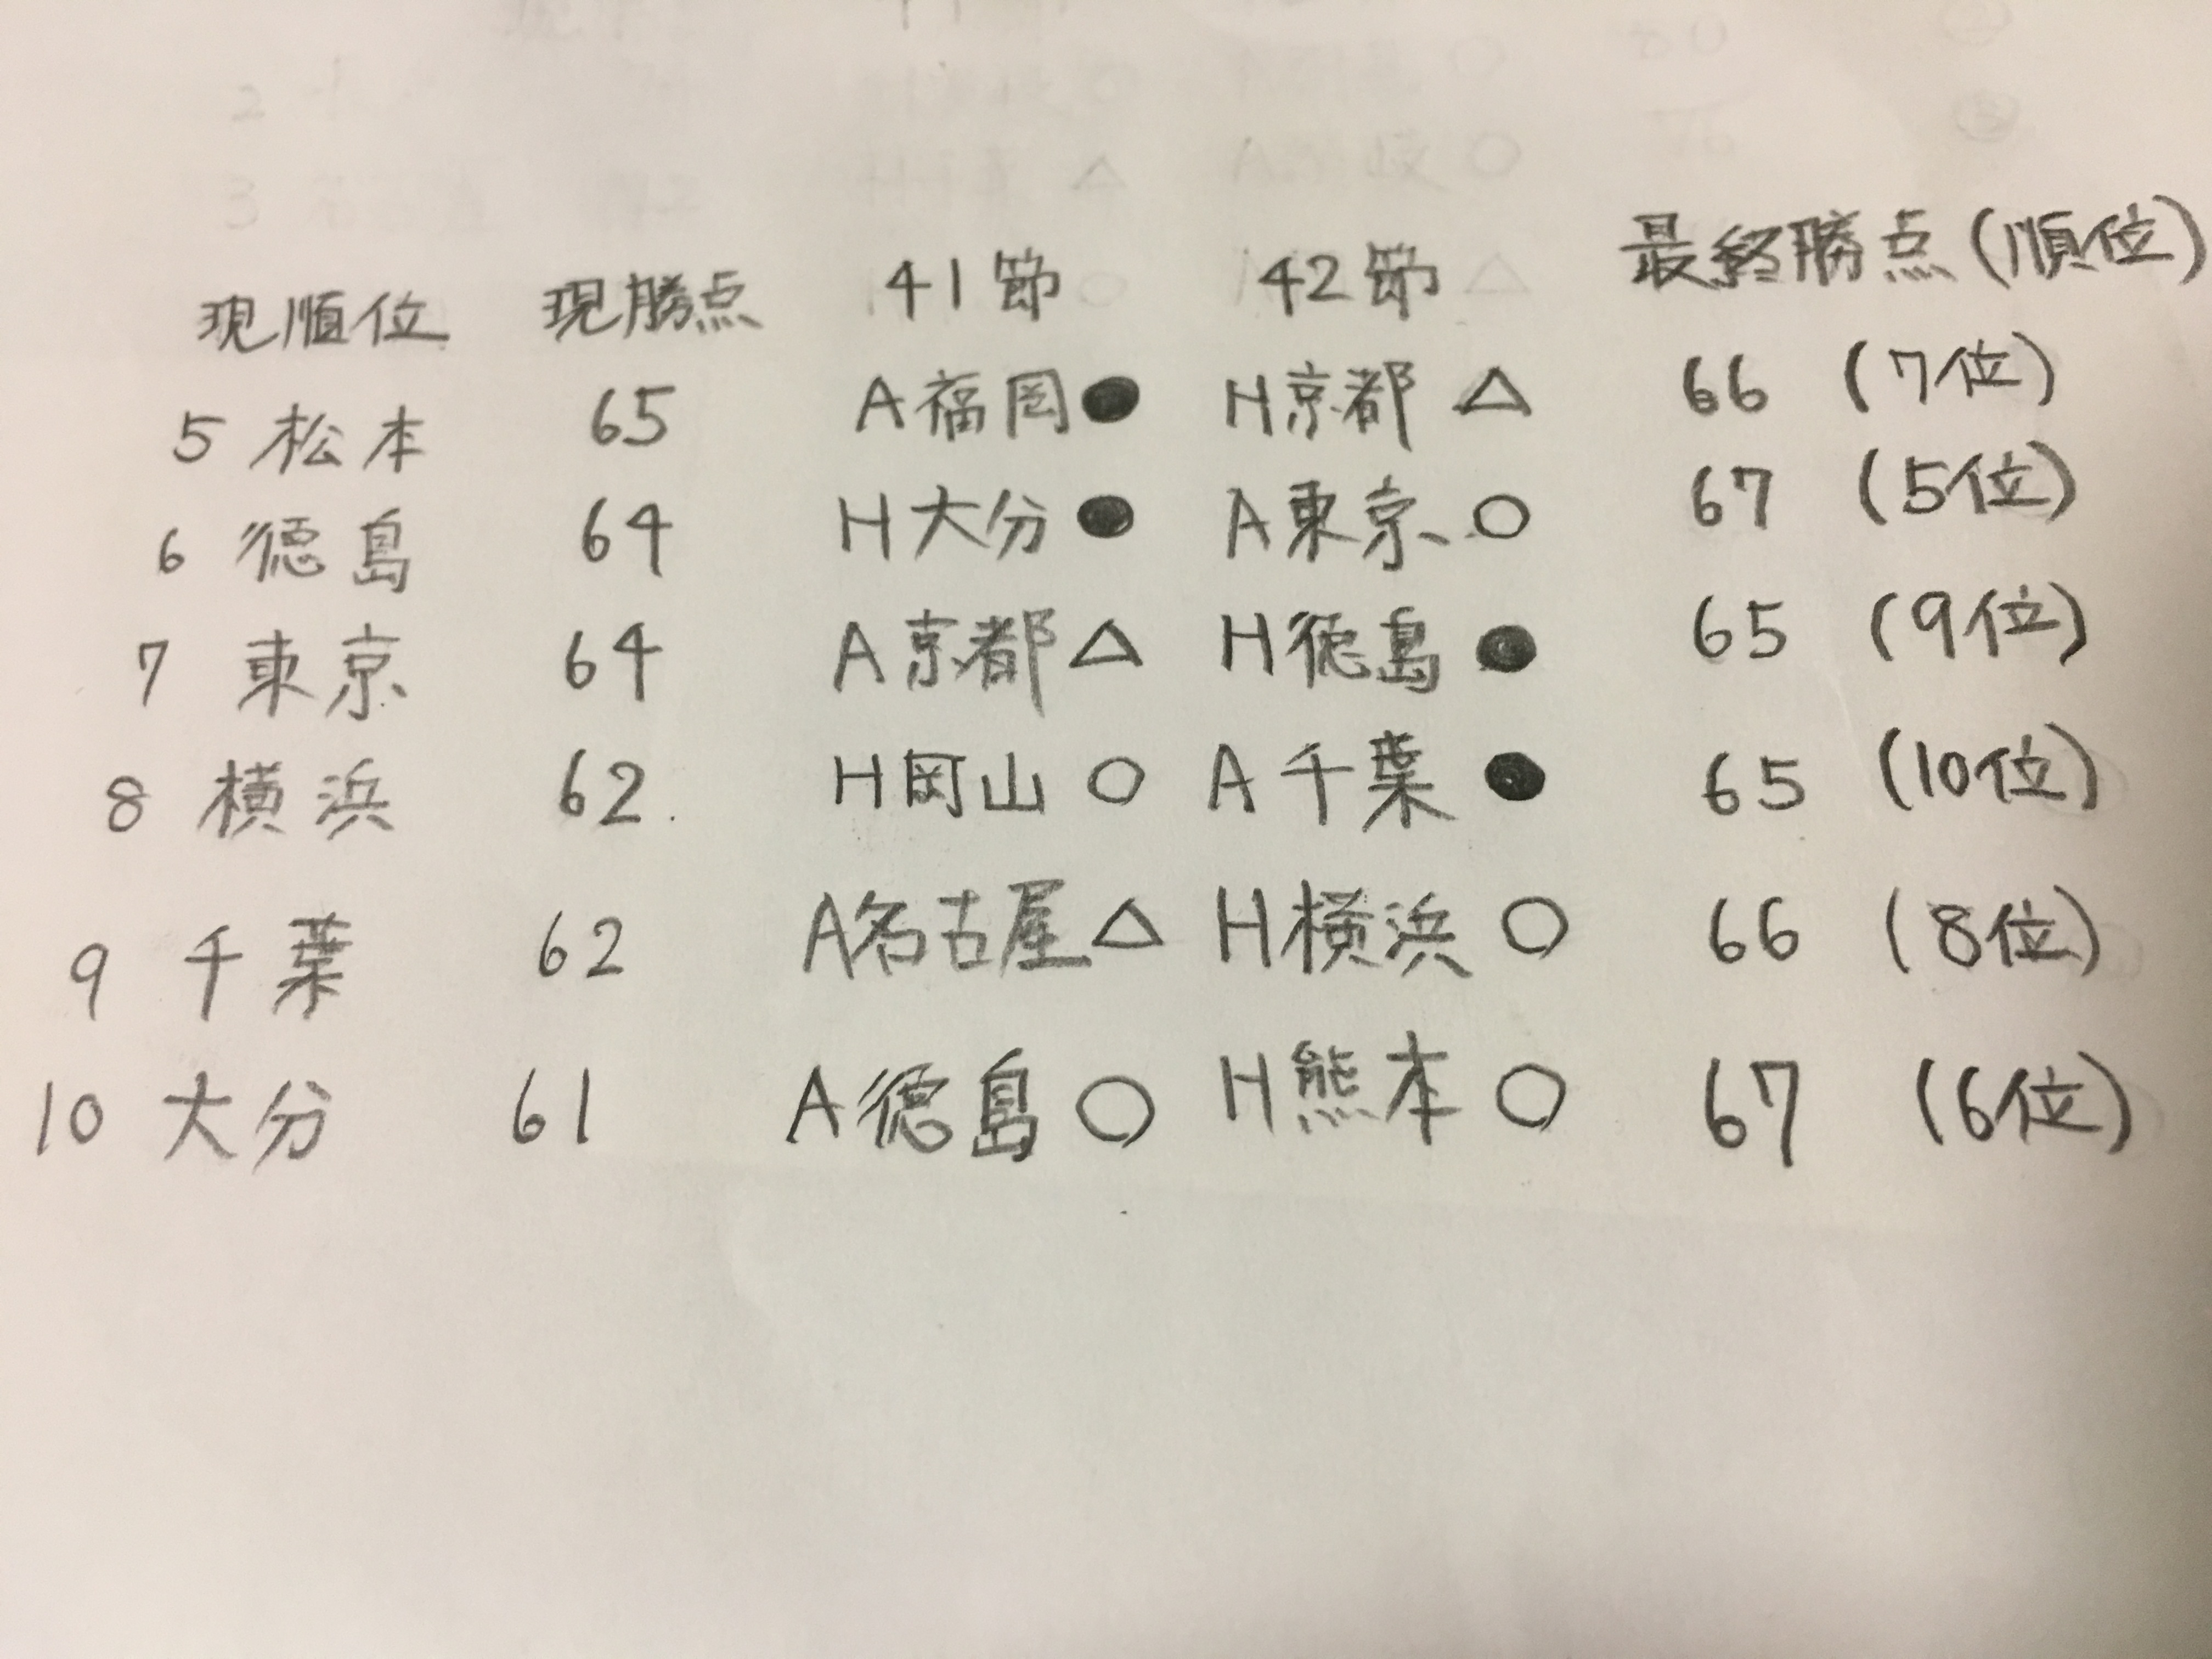 現順位 現勝点 41節 42節 最終勝点(順位)
5 松本 65 A福岡● H京都△ 66 (7位)
6 徳島 64 H大分● A東京○ 67 (5位)
7 東京 64 A京都△ H徳島● 65 (9位)
8 横浜 62 H岡山○ A千葉● 65 (10位)
9 千葉 62 A名古屋△ H横浜○ 66 (8位)
10 大分 61 A徳島○ H熊本○ 67 (6位)